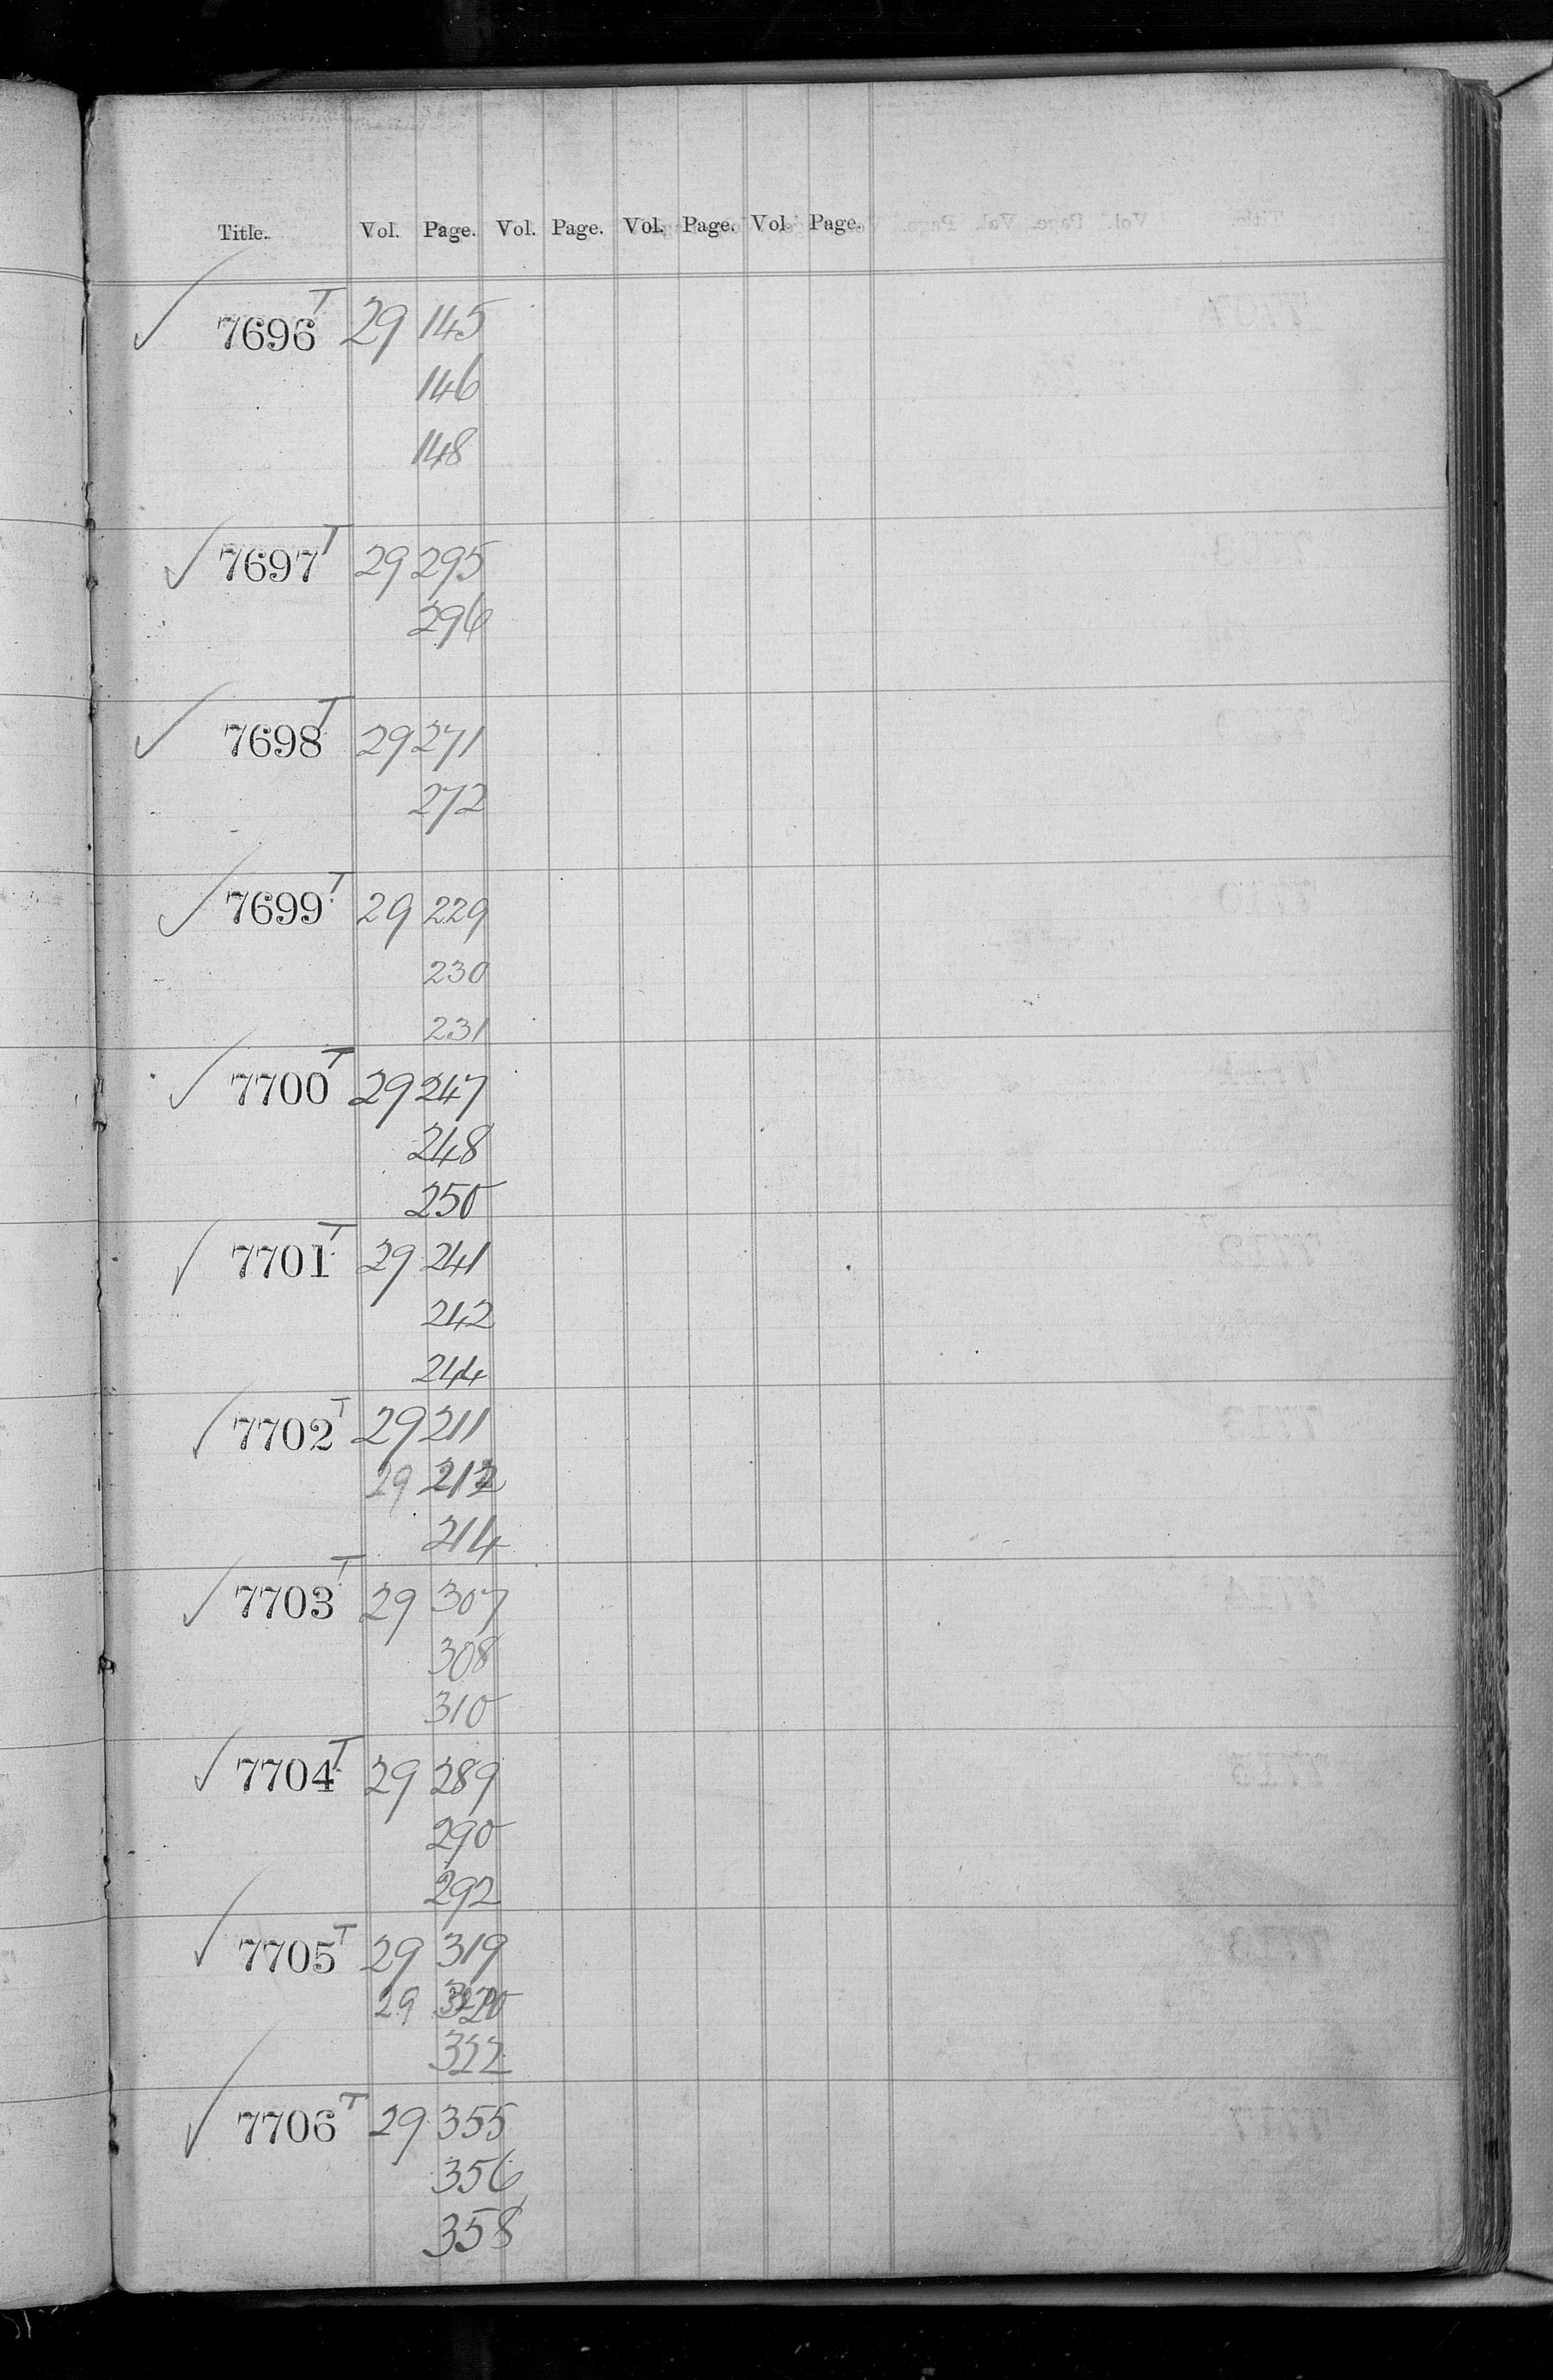 Title. Vol. Page. Vol. Page. Vol. Page. Vol. Page.
✓ 7696 T 29 145
146
148
✓ 7697 T 29 295
296
✓ 7698 T 29 271
272
✓ 7699 T 29 229
230
231
✓ 7700 T 29 247
248
250
✓ 7701 T 29 241
242
244
✓ 7702 T 29 211
29 212
214
✓ 7703 T 29 307
308
310
✓ 7704 T 29 289
290
292
✓ 7705 T 29 319
29 320
322
✓ 7706 T 29 355
356
358